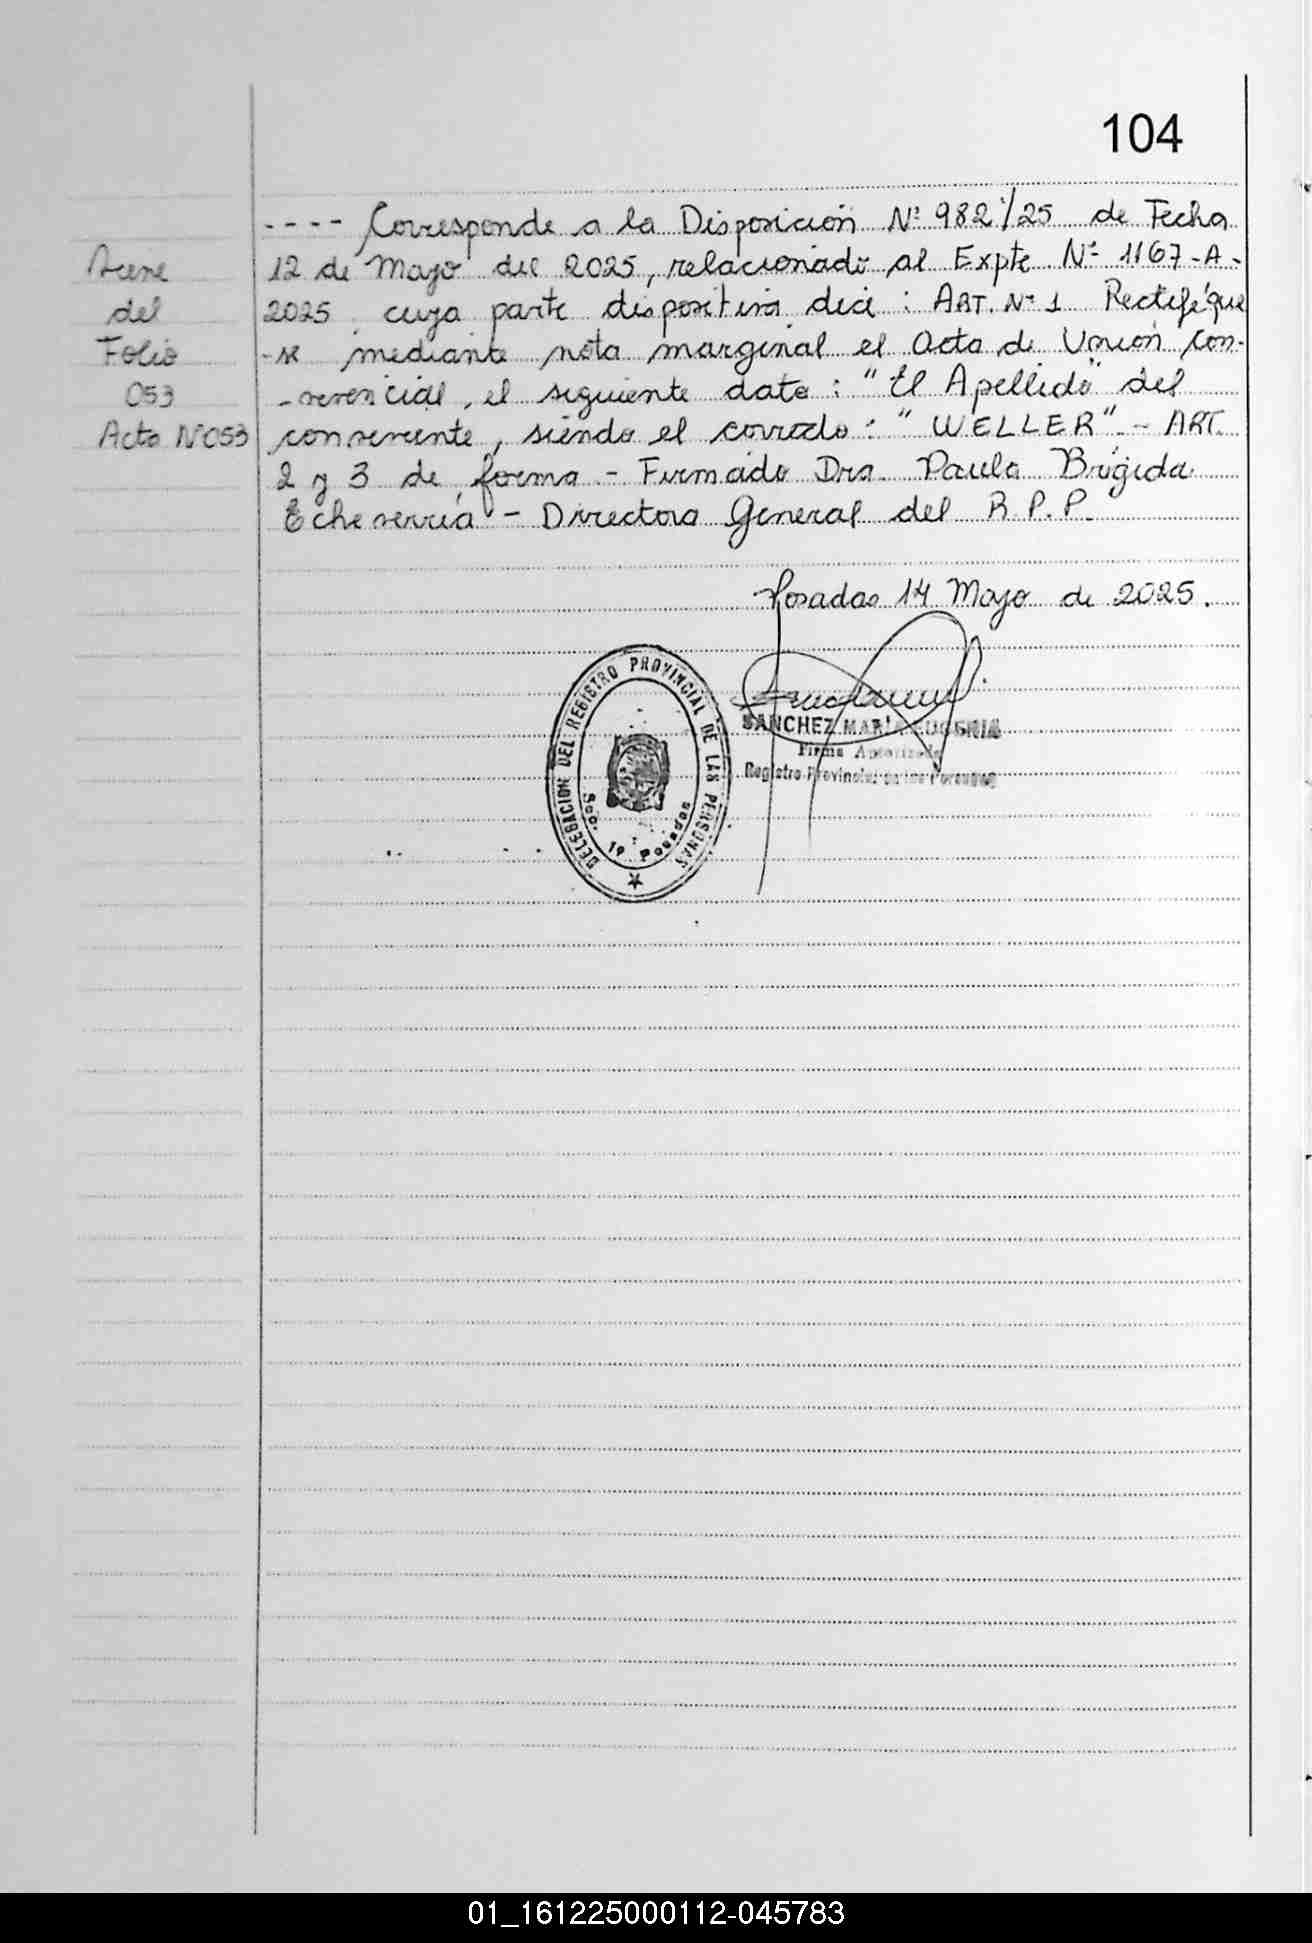 104
---- Corresponde a la Disposición Nº 982/25 de Fecha
12 de Mayo del 2025, relacionado al Expte Nº 1167-A-
2025, cuya parte dispositiva dice: ART. Nº 1 Rectifíque
-se mediante nota marginal el Acta de Unión con-
-vivencial, el siguiente dato: "El Apellido" del
conviviente, siendo el correcto: "WELLER".- ART.
2 y 3 de forma - Firmado Dra. Paula Brígida
Echeverría - Directora General del R.P.P.
Viene
del
Folio
053
Acta Nº 053
Posadas 14 Mayo de 2025.
SANCHEZ MARÍA EUGENIA
Firma Autorizada
Registro Provincial de las Personas
DELEGACION DEL REGISTRO PROVINCIAL DE LAS PERSONAS
Sec. 1ª Posadas
01_161225000112-045783